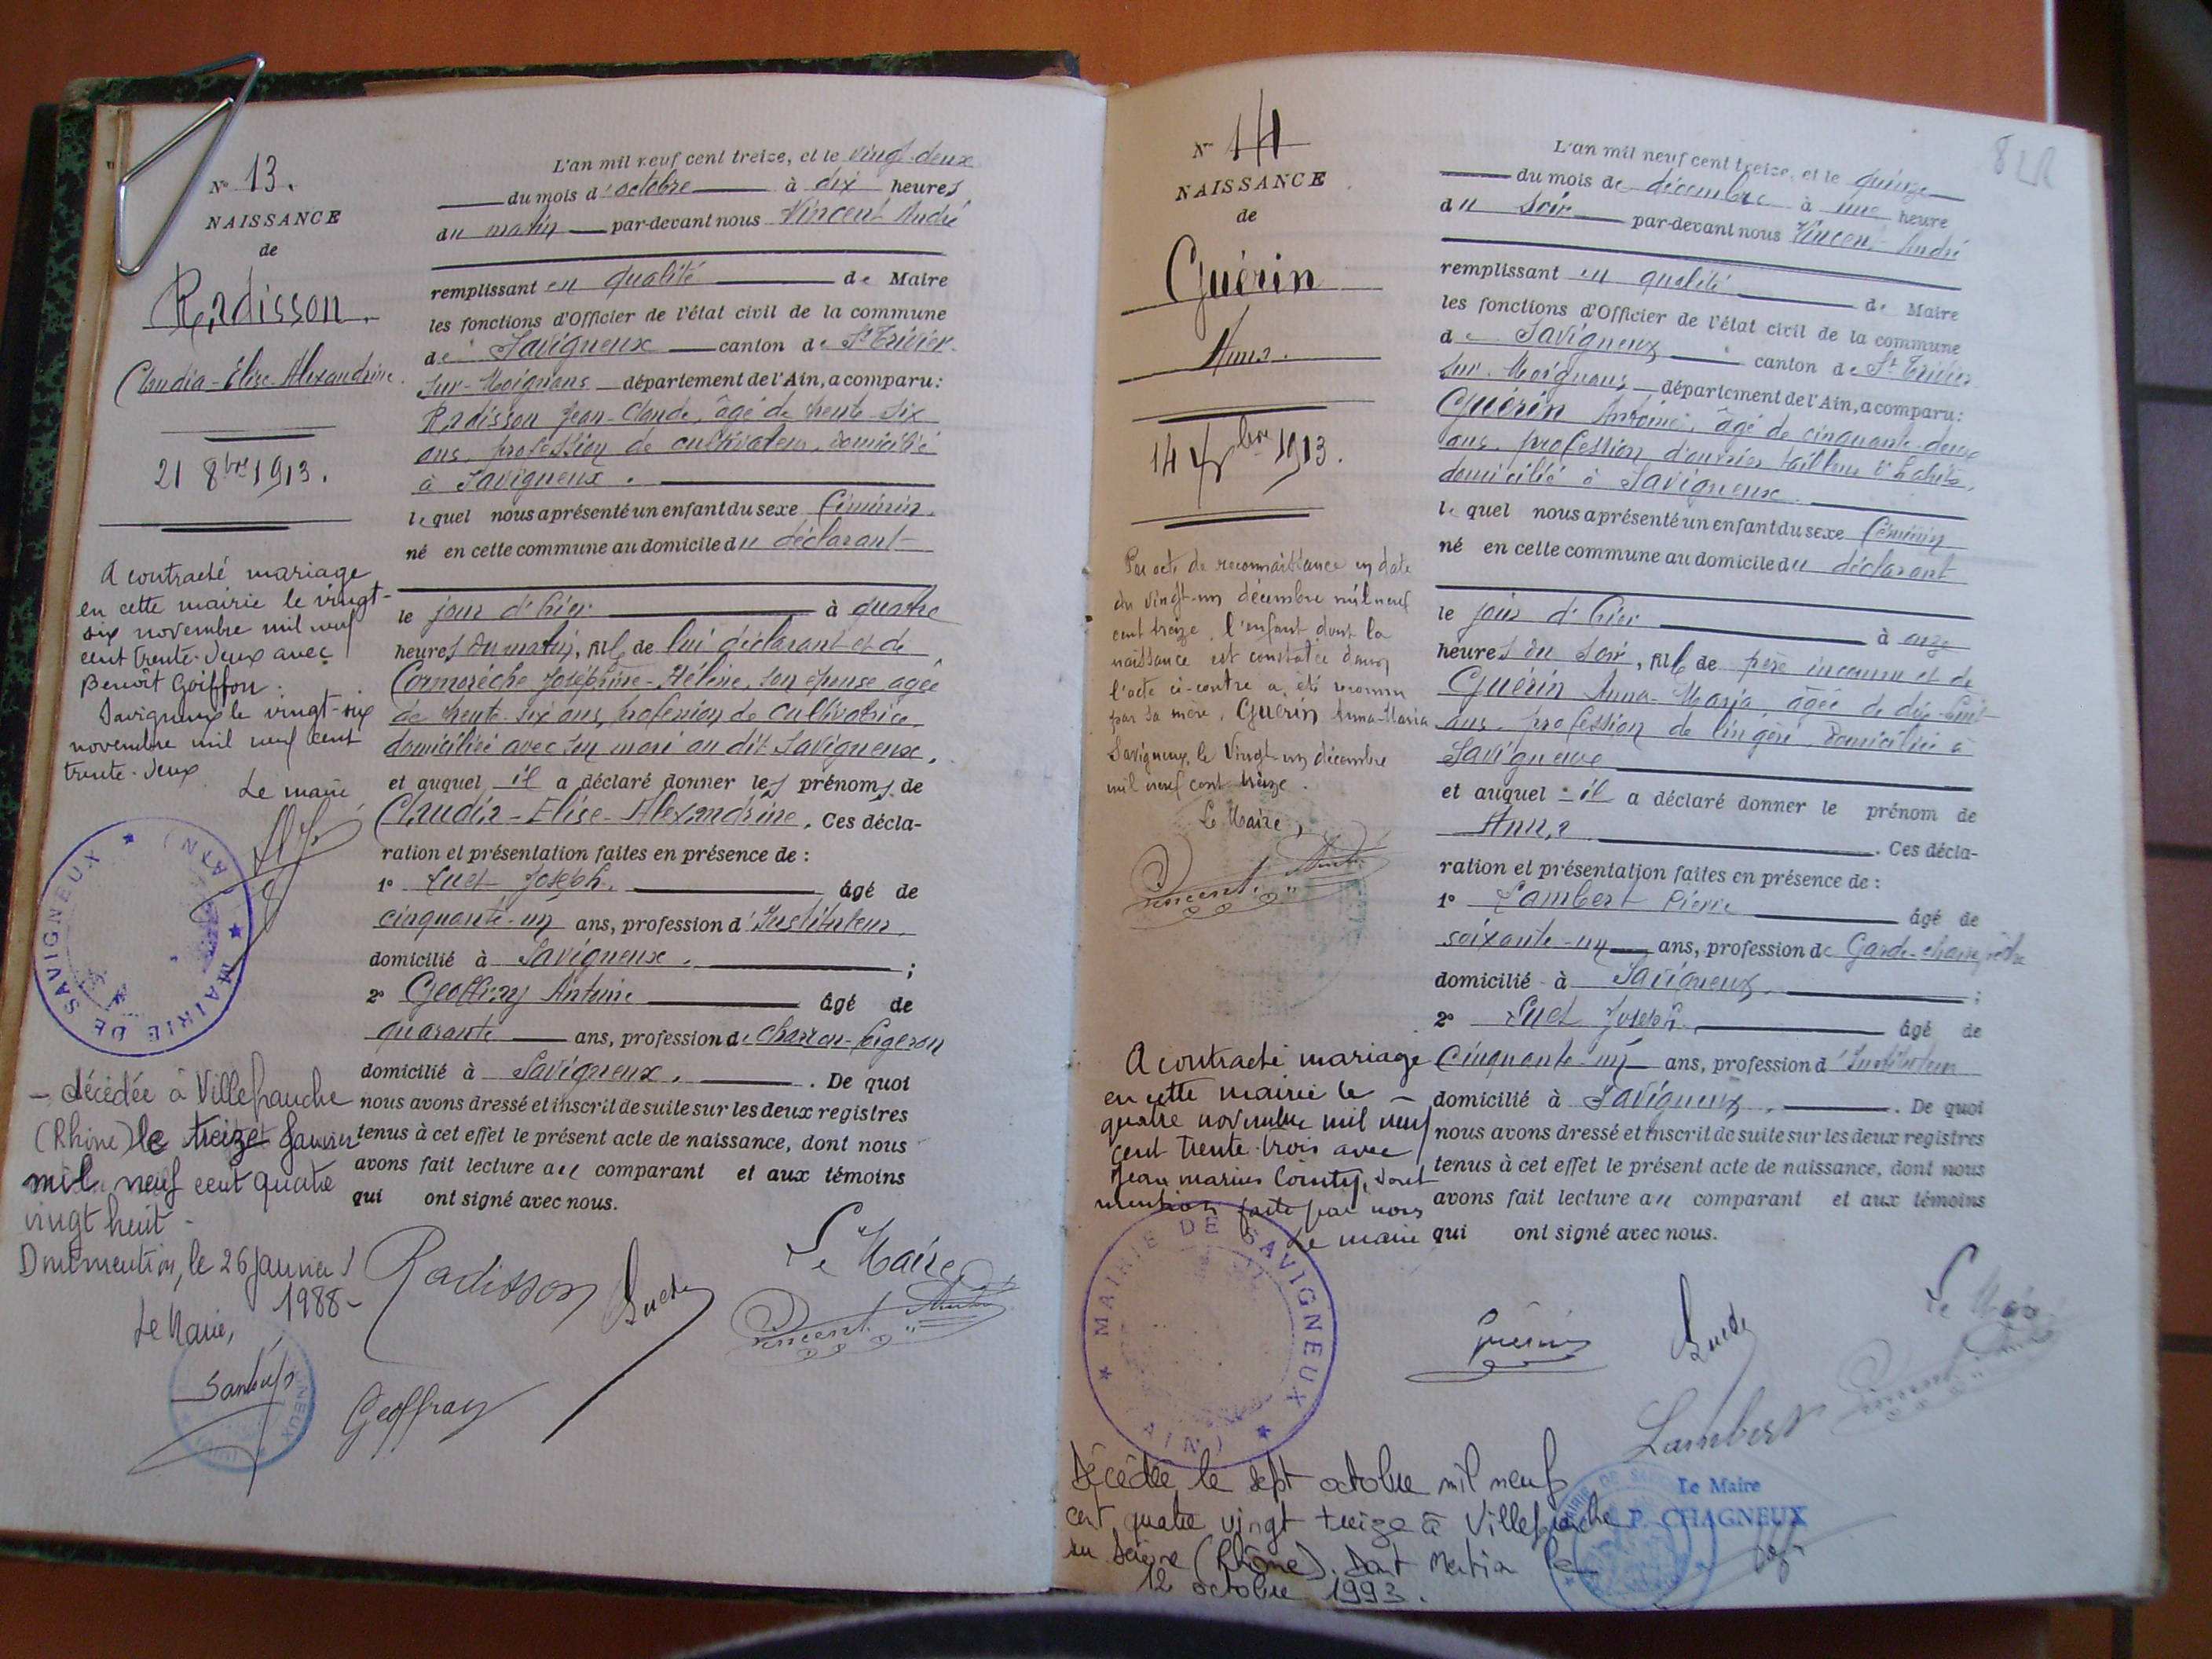 N° 13.
NAISSANCE
de
Radisson
Claudia-Élise-Alexandrine.
21 8bre 1913.
A contracté mariage
en cette mairie le vingt-
six novembre mil neuf
cent trente-deux avec
Benoît Goiffon.
Savigneux le vingt-six
novembre mil neuf cent
trente-deux
Le maire
MAIRIE DE SAVIGNEUX (AIN)
- décédée à Villefranche
(Rhône) le treize Janvier
mil neuf cent quatre
vingt huit -
Dont mention, le 26 janvier
1988-
Le Maire,
L'an mil neuf cent treize, et le vingt-deux
du mois d'octobre à dix heures
du matin par-devant nous Vincent André
remplissant en qualité de Maire
les fonctions d'Officier de l'état civil de la commune
de Savigneux canton de St Trivier
sur-Moignans département de l'Ain, a comparu:
Radisson Jean-Claude, âgé de trente-six
ans, profession de cultivateur, domicilié
à Savigneux.
lequel nous a présenté un enfant du sexe féminin,
né en cette commune au domicile du déclarant
le jour d'hier à quatre
heures du matin, fille de lui déclarant et de
Cormorèche Joséphine-Hélène, son épouse âgée
de trente-six ans, profession de cultivatrice,
domiciliée avec son mari au dit Savigneux.
et auquel il a déclaré donner les prénoms de
Claudia-Elise-Alexandrine. Ces décla-
ration et présentation faites en présence de :
1° Suet Joseph, âgé de
cinquante-un ans, profession d'Instituteur
domicilié à Savigneux. ;
2° Geoffray Antoine âgé de
quarante ans, profession de charron-forgeron
domicilié à Savigneux. . De quoi
nous avons dressé et inscrit de suite sur les deux registres
tenus à cet effet le présent acte de naissance, dont nous
avons fait lecture au comparant et aux témoins
qui ont signé avec nous.
Le Maire,
Radisson Suet
Vincent André
Geoffray
N° 14
NAISSANCE
de
Guérin
Anna.
14 Xbre 1913.
Par acte de reconnaissance en date
du vingt-un décembre mil neuf
cent treize, l'enfant dont la
naissance est constatée dans
l'acte ci-contre a été reconnu
par sa mère, Guérin Anna-Maria
Savigneux, le vingt-un décembre
mil neuf cent treize.
Le Maire,
Vincent André
A contracté mariage
en cette mairie le
quatre novembre mil neuf
cent trente-trois avec
Jean Marius Cointy, dont
mention faite par nous
Le maire
MAIRIE DE SAVIGNEUX (AIN)
L'an mil neuf cent treize, et le quinze
du mois de décembre à une heure
du soir par-devant nous Vincent André
remplissant en qualité de Maire
les fonctions d'Officier de l'état civil de la commune
de Savigneux canton de St Trivier
sur-Moignans département de l'Ain, a comparu:
Guérin Antoine, âgé de cinquante-deux
ans, profession d'ouvrier tailleur d'habits,
domicilié à Savigneux.
lequel nous a présenté un enfant du sexe féminin
né en cette commune au domicile du déclarant
le jour d'hier à onze
heures du soir, fille de père inconnu et de
Guérin Anna-Maria, âgée de dix-huit
ans, profession de lingère, domiciliée à
Savigneux
et auquel il a déclaré donner le prénom de
Anna . Ces décla-
ration et présentation faites en présence de :
1° Lambert Pierre âgé de
soixante-un ans, profession de Garde-champêtre
domicilié à Savigneux. ;
2° Suet Joseph, âgé de
cinquante-un ans, profession d'Instituteur
domicilié à Savigneux. . De quoi
nous avons dressé et inscrit de suite sur les deux registres
tenus à cet effet le présent acte de naissance, dont nous
avons fait lecture au comparant et aux témoins
qui ont signé avec nous.
Le Maire
Guérin Suet
Vincent André
Lambert
Décédée le sept octobre mil neuf
cent quatre vingt treize à Villefranche
sur Saône (Rhône). Dont Mention le
12 octobre 1993.
Le Maire
P. CHAGNEUX